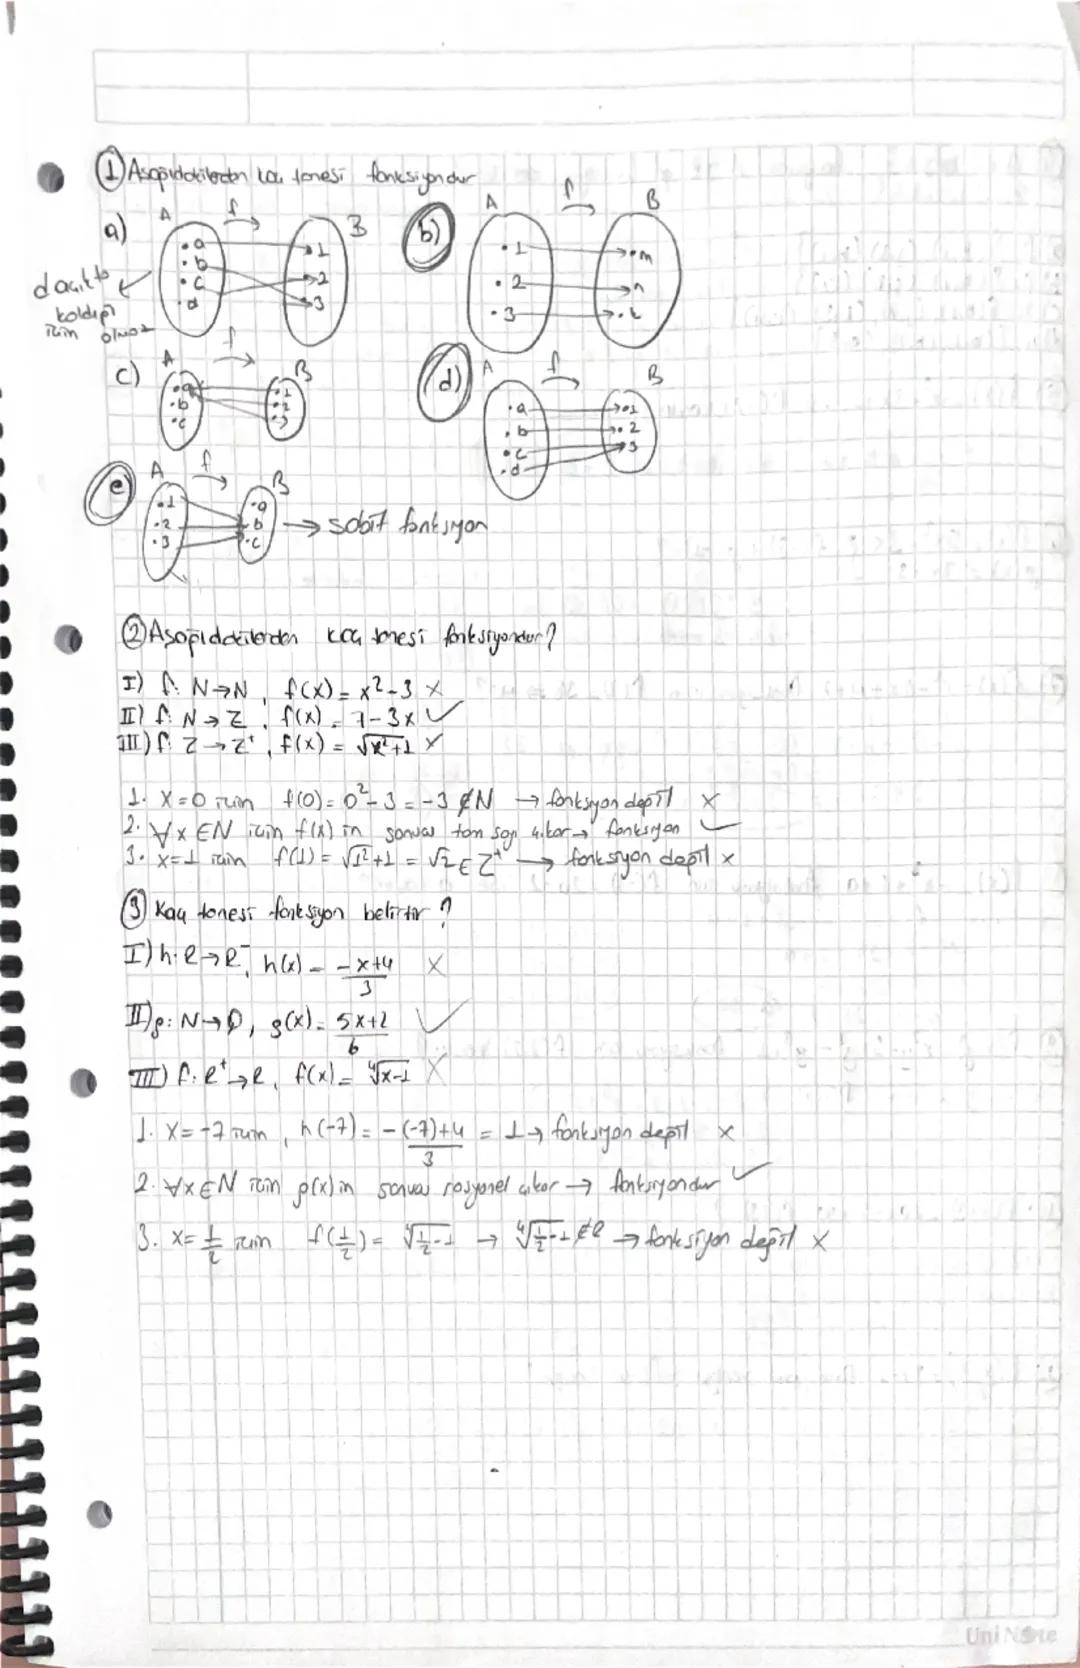 ① Aşağıdakilerden kaç tanesi fonksiyondur
a) A f B
a
b
c
d
1
2
3
d açıkta
kaldığı
için olmaz
b) A f B
1
2
3
m
n
k
c) A f B
a
b
c
1
2
3
d) A f B
a
b
c
d
1
2
3
e) A f B
1
2
3
a
b
c
→ sabit fonksiyon
② Aşağıdakilerden kaç tanesi fonksiyondur?
I) f: N→N, f(x) = x²-3 ×
II) f: N→Z, f(x) = 7-3x ✓
III) f: Z→Z⁺, f(x) = √x²+1 ×
1. x=0 için f(0) = 0²-3 = -3 ∉ N → fonksiyon değil ×
2. ∀x∈N için f(x) in sonucu tam sayı çıkar → fonksiyon ✓
3. x=1 için f(1) = √1²+1 = √2 ∈ Z⁺ → fonksiyon değil ×
③ Kaç tanesi fonksiyon belirtir?
I) h: R→R⁻, h(x) = -x+4 / 3 ×
II) g: N→Q, g(x) = 5x+2 / 6 ✓
III) f: R⁺→R, f(x) = ⁴√x-1 ×
1. x=-7 için, h(-7) = -(-7)+4 / 3 = 1 → fonksiyon değil ×
2. ∀x∈N için g(x) in sonucu rasyonel çıkar → fonksiyondur ✓
3. x=1/2 için f(1/2) = ⁴√1/2-1 → ⁴√1/2-1 ∉ R → fonksiyon değil ×
UniNote